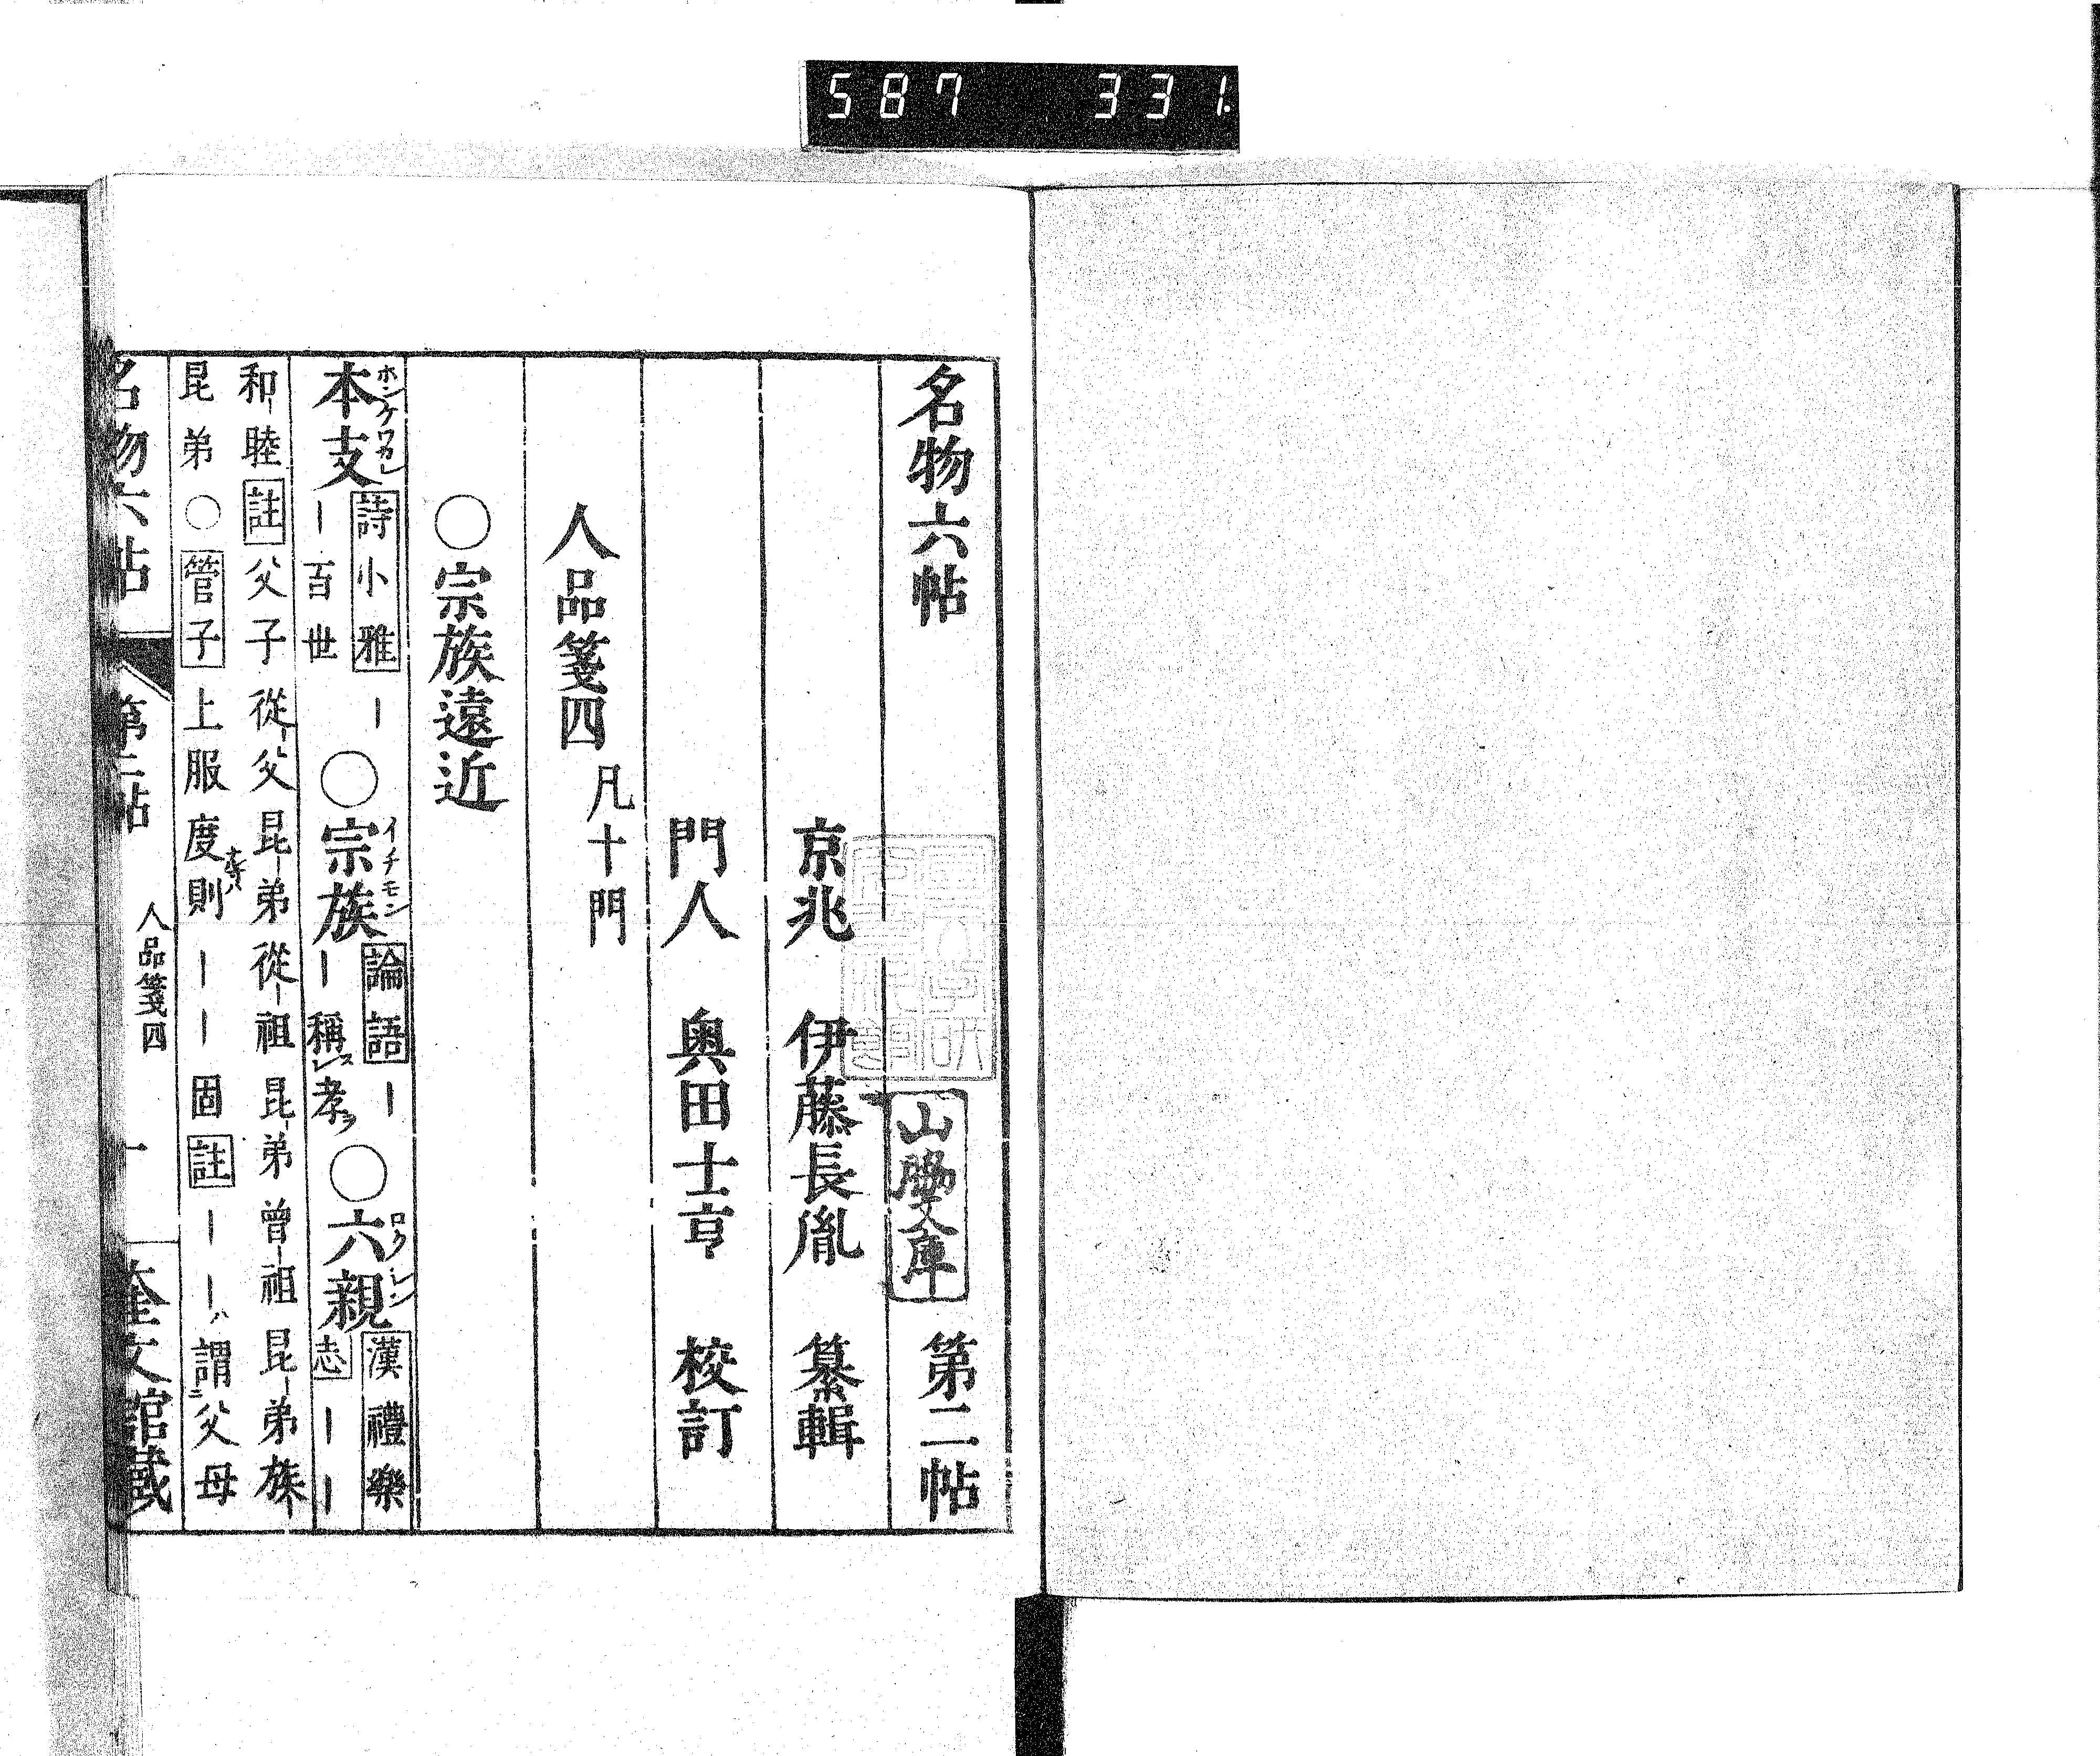 587 331.
名物六帖 第二帖
山脇文庫
京兆 伊藤長胤 纂輯
門人 奥田士亨 校訂
人品箋四 凡十門
〇宗族遠近
本支 ホンケワカレ 詩小雅 ｜｜百世 〇宗族 イチモン 論語 ｜｜稱スレ孝ヲ 〇六親 ロクシン 漢禮樂志 ｜｜
和-睦 註 父子從-父昆-弟從-祖昆-弟曾-祖昆-弟族-
昆弟 〇 管子 上服度則 ｜｜固 註 ｜｜ハ謂ニ父母
名物六帖 第二帖 人品箋四 一 奎文館藏